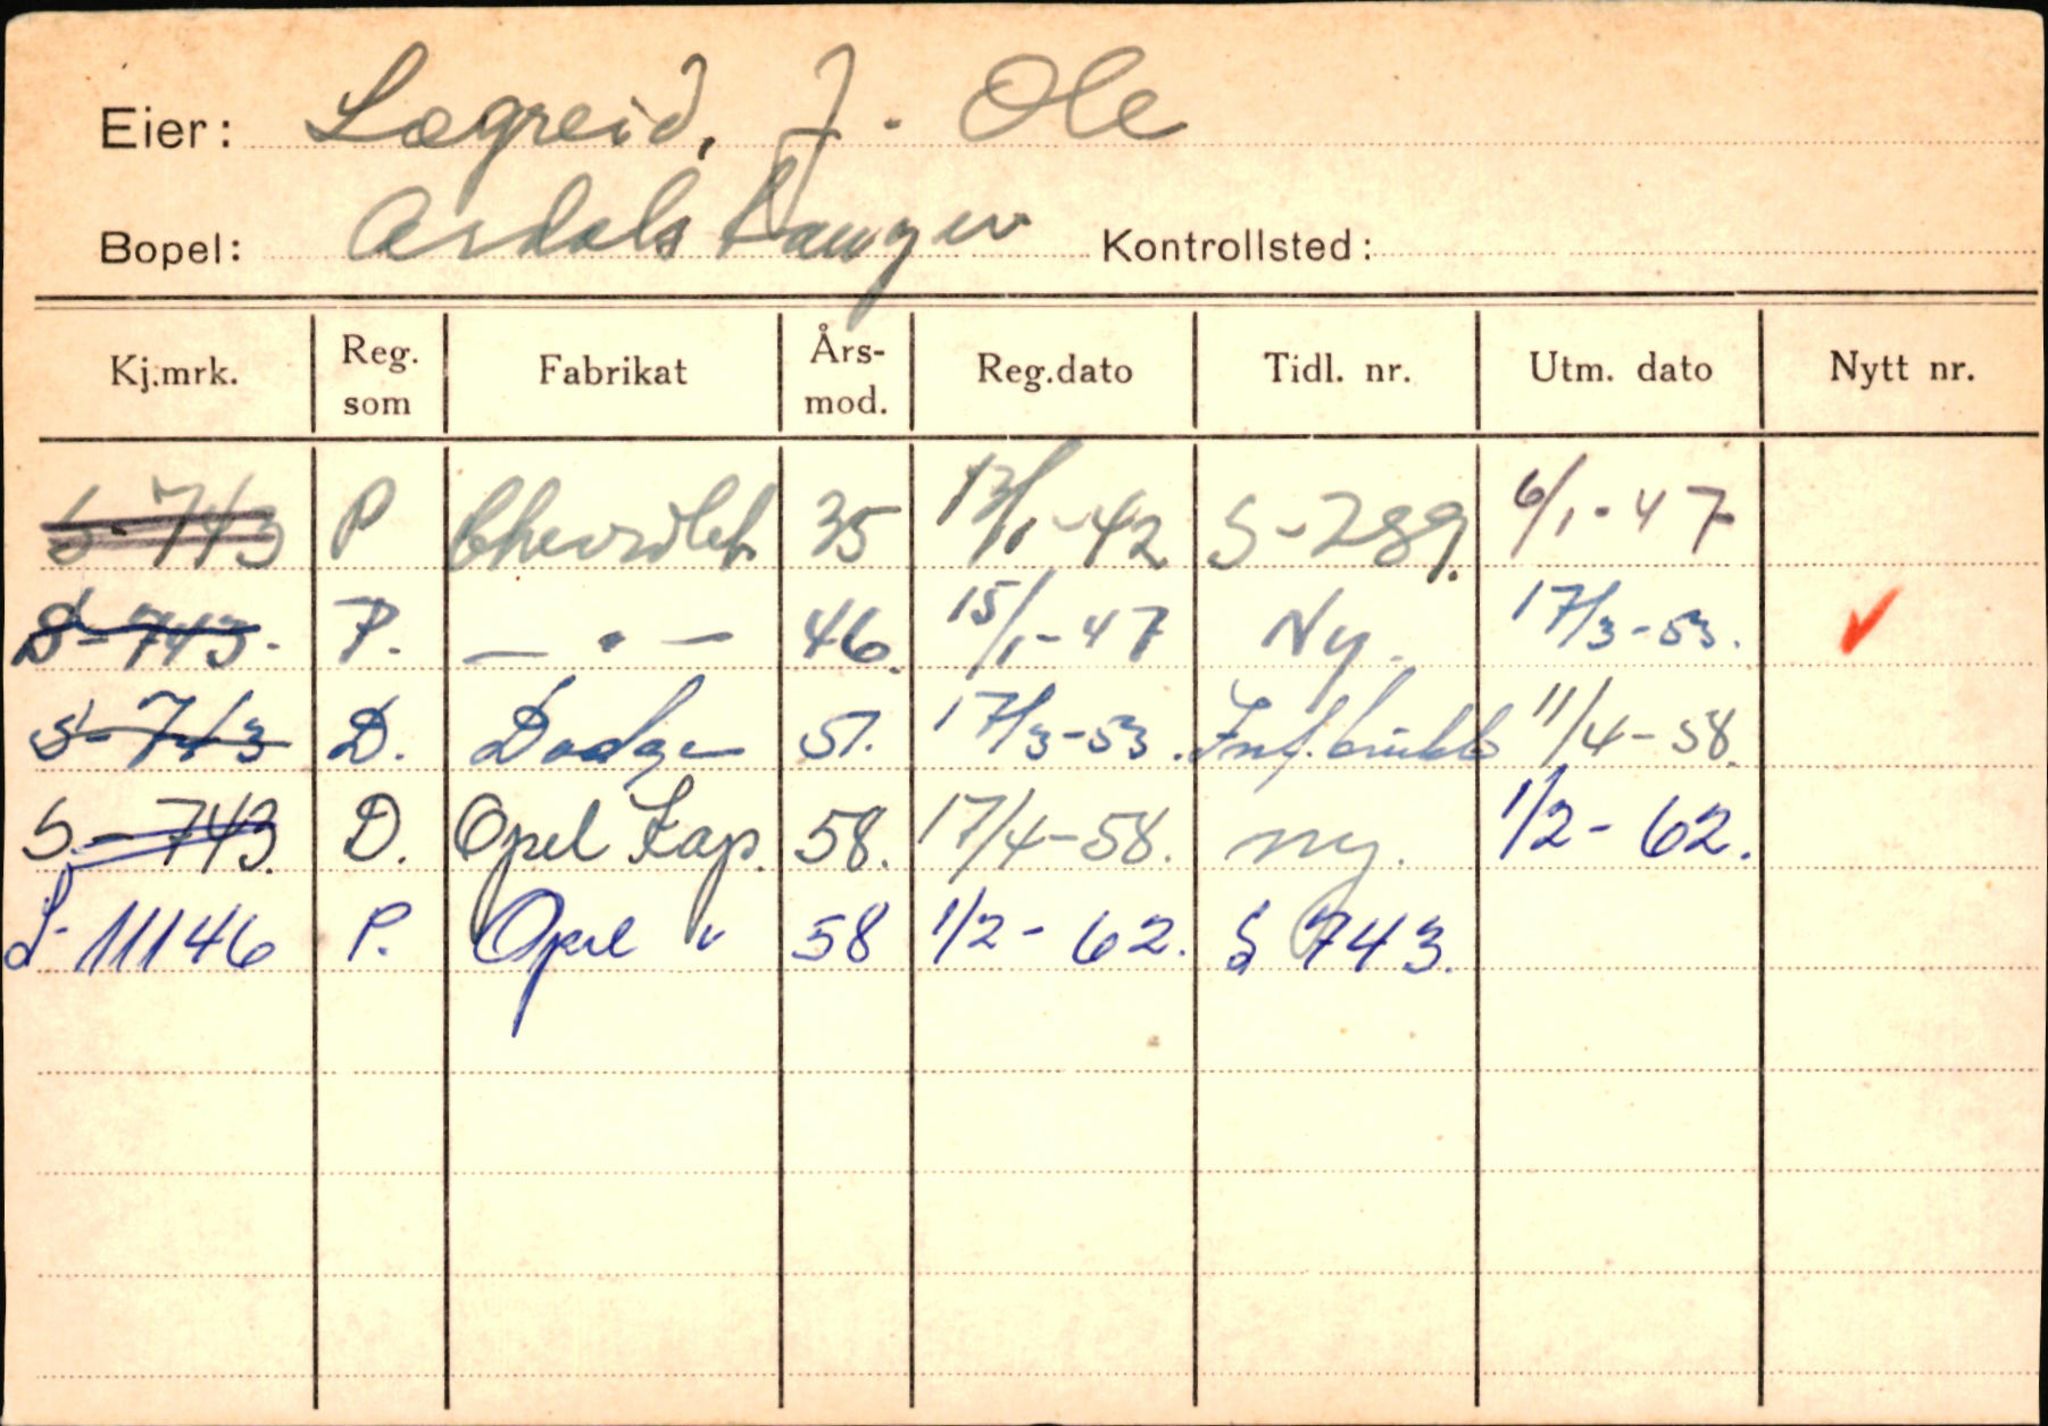 Eier: Lægreid, J. Ole
Bopel: Årdalstangen Kontrollsted:
Kj.mrk. Reg. som Fabrikat Års-mod. Reg.dato Tidl. nr. Utm. dato Nytt nr.
S-743 P Chevrolet 35 13/1-42 S-289. 6/1-47
S-743. P. — " — 46. 15/1-47 Ny. 17/3-53. ✓
S-743 D. Dodge 51. 17/3-53. 11/4-58.
S.-743. D. Opel Kap. 58. 17/4-58. ny. 1/2-62.
S-11146 P. Opel " 58 1/2-62. S 743.